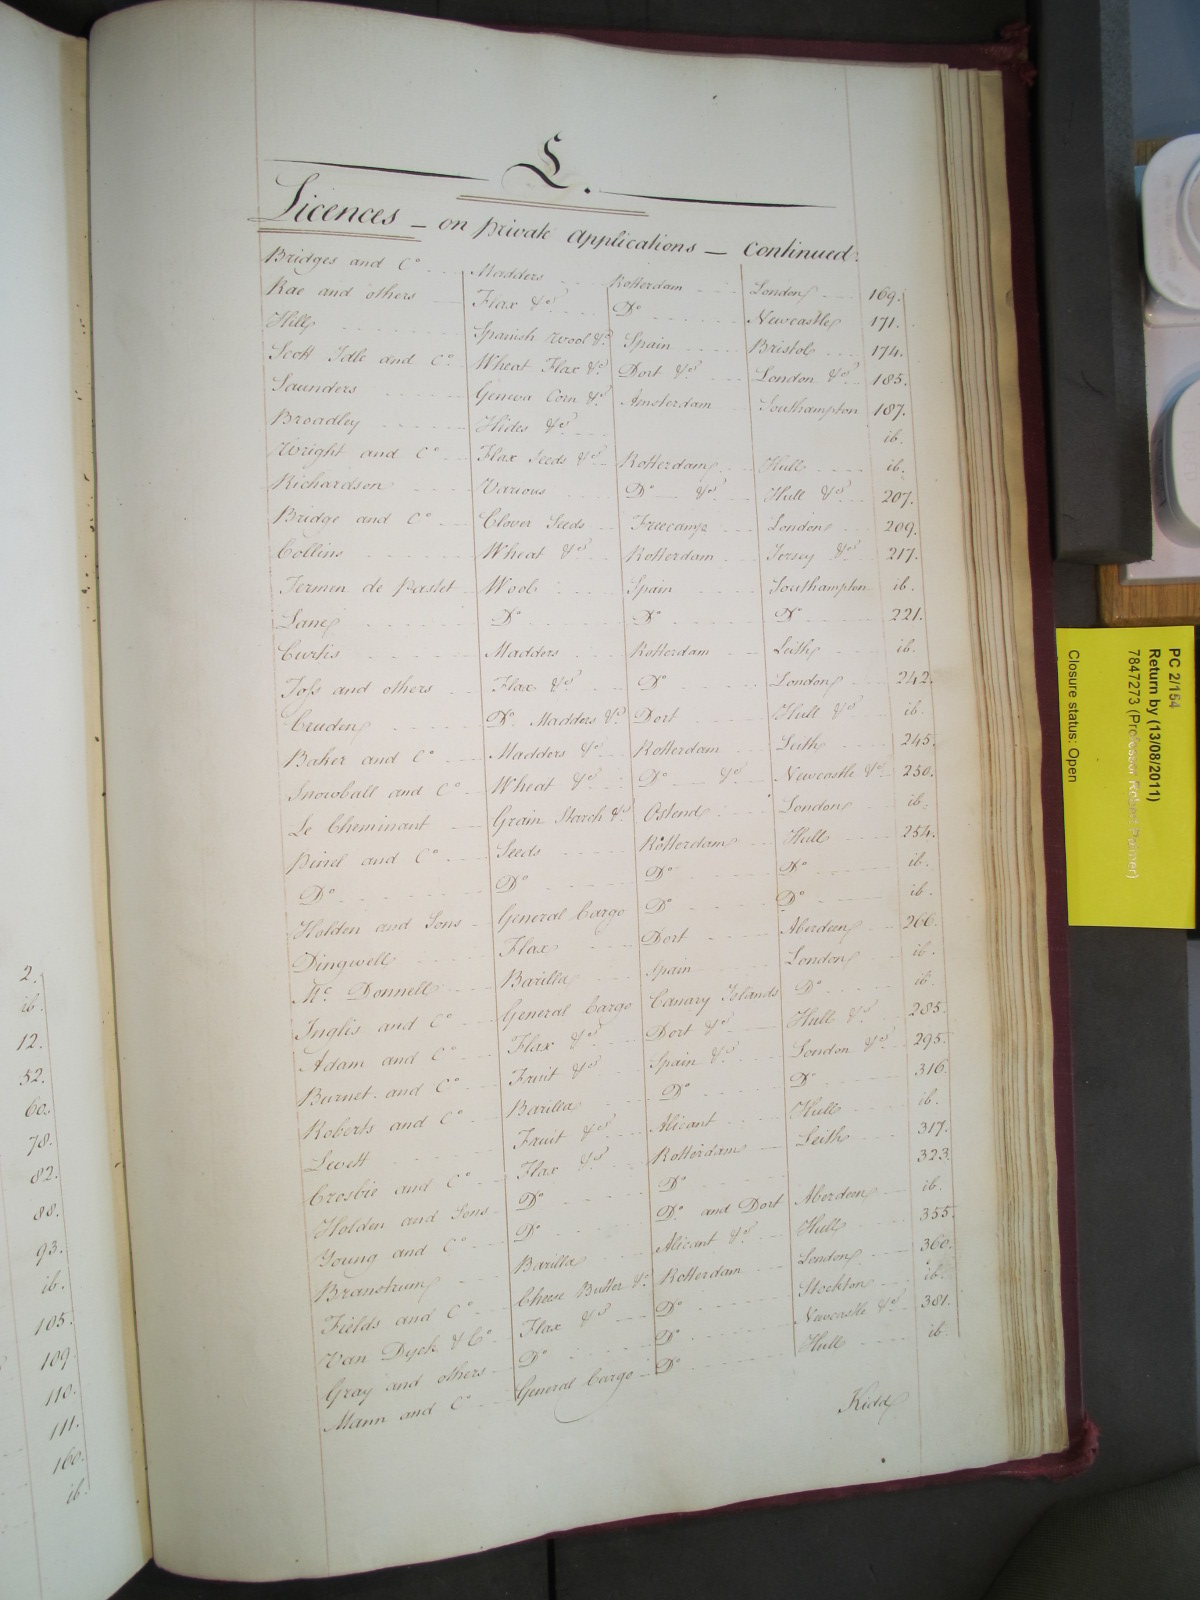 L.
Licences - on private applications - Continued.
Bridges and Co Madders Rotterdam London 169.
Rae and others Flax &c Do Newcastle 171.
Hill Spanish Wool &c Spain Bristol 174.
Scott Idle and Co Wheat Flax &c Dort &c London &c 185.
Saunders Geneva Corn &c Amsterdam Southampton 187.
Broadley Hides &c ib.
Wright and Co Flax Seeds &c Rotterdam Hull ib.
Richardson Various Do &c Hull &c 207.
Bridge and Co Clover Seeds London 209.
Collins Wheat &c Rotterdam Jersey &c 217.
Fermen de Pastet Wool Spain Southampton ib.
Lane Do Do Do 221.
Curtis Madders Rotterdam Leith ib.
Joss and others Flax &c Do London 242.
Cruden Do Madders &c Dort Hull &c ib.
Baker and Co Madders &c Rotterdam Leith 245.
Snowball and Co Wheat &c Do &c Newcastle &c 250.
Le Cheminant Grain Starch &c Ostend London ib.
Pinel and Co Seeds Rotterdam Hull 254.
Do Do Do Do ib.
Holden and Sons General Cargo Do Do ib.
Dingwell Flax Dort Aberdeen 266.
Mc Donnell Barilla Spain London ib.
Inglis and Co General Cargo Canary Islands Do ib.
Adam and Co Flax &c Dort &c Hull &c 285.
Burnet and Co Fruit &c Spain &c London &c 295.
Roberts and Co Barilla Do Do 316.
Levett Fruit &c Alicant Hull ib.
Crosbie and Co Flax &c Rotterdam Leith 317.
Holden and Sons Do Do 323.
Young and Co Do Do and Dort Aberdeen ib.
Branstrum Barilla Alicant &c Hull 355.
Fields and Co Cheese Butter &c Rotterdam London 360.
Van Dyck & Co Flax &c Do Stockton ib.
Gray and others Do Do Newcastle &c 381.
Mann and Co General Cargo Do Hull ib.
Kidd
2.
ib.
12.
52.
60.
78.
82.
88.
93.
ib.
105.
109.
110.
111.
160.
ib.
PC 2/154
Return by (13/08/2011)
7847273 (Professor
Closure status: Open